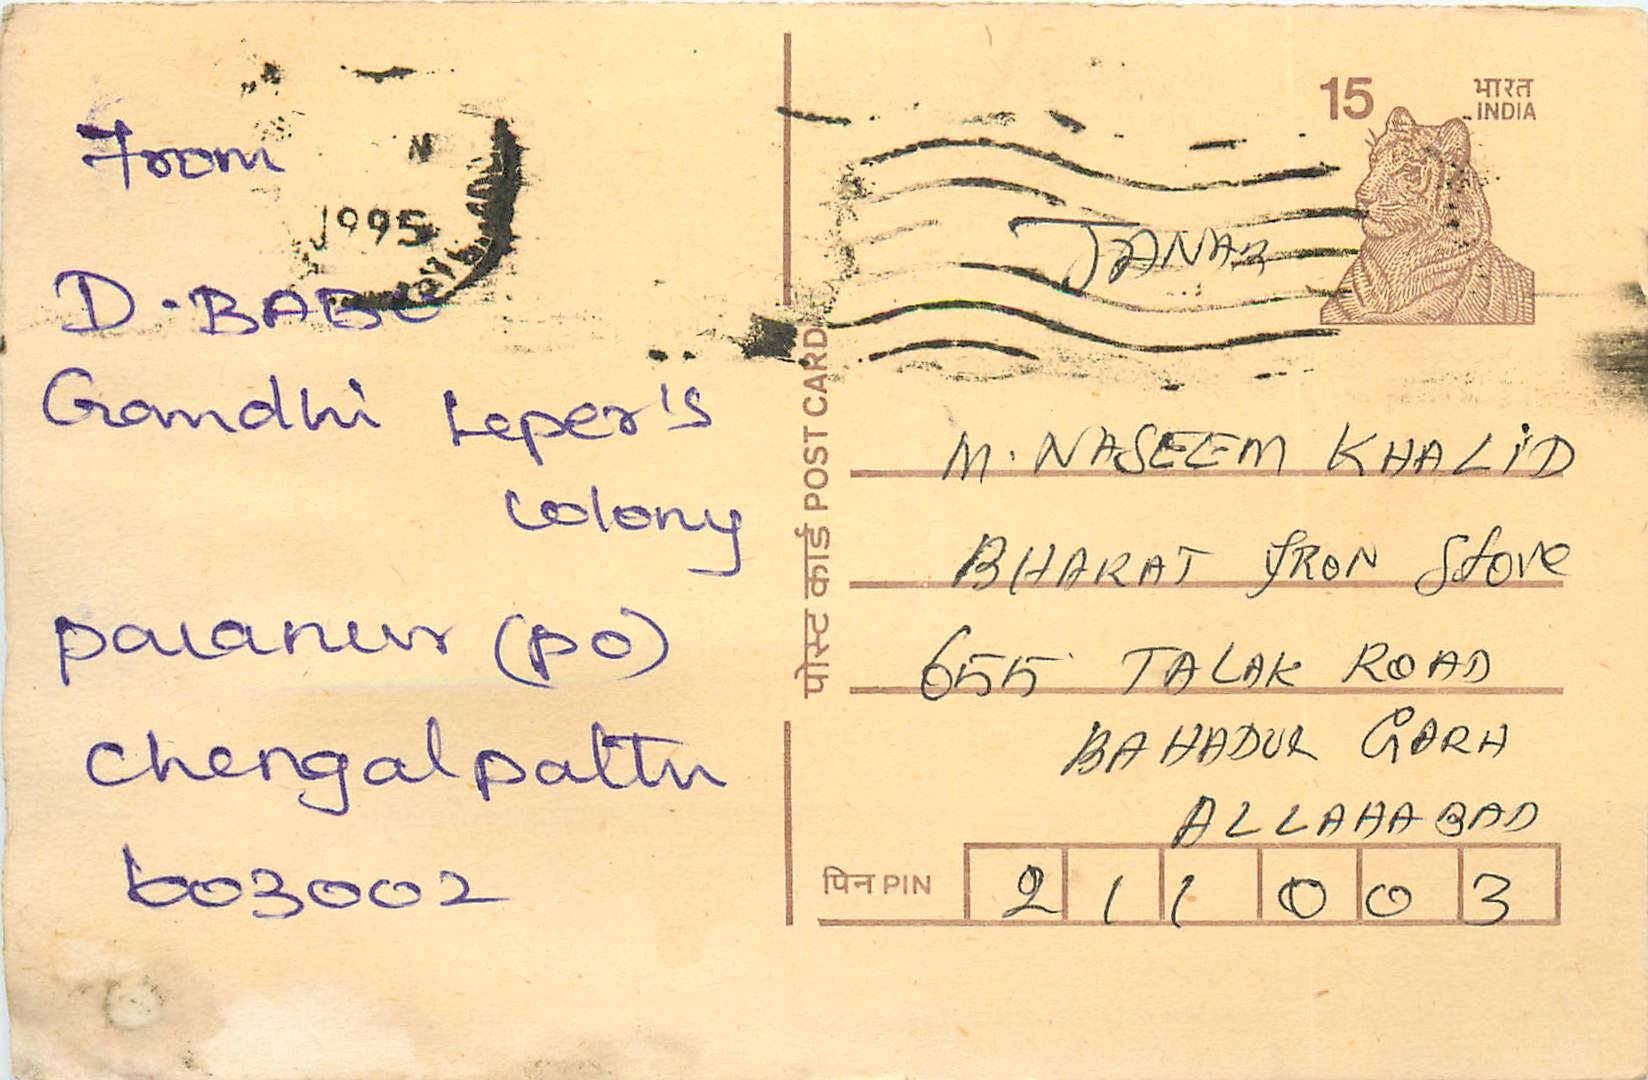 From
1995
D. BABU
Gandhi Leper's
Colony
Palanur (po)
Chengalpattu
603002
15
भारत
INDIA
पोस्ट कार्ड POST CARD
JANAB
M. NASEEM KHALID
BHARAT IRON Store
655 TALAK ROAD
BAHADUR GARH
ALLAHABAD
पिन PIN 211003